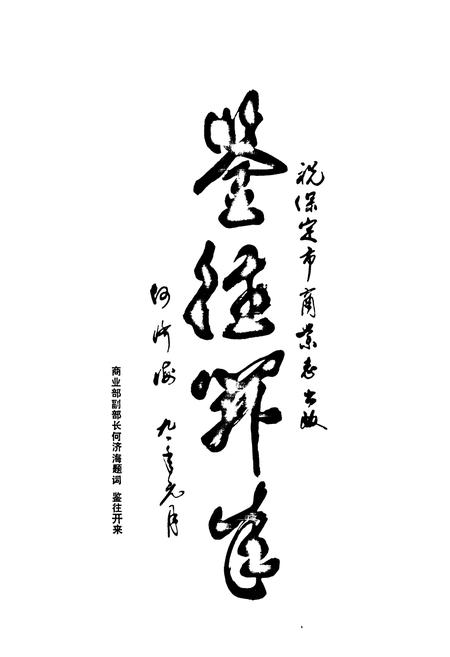 祝保定市商业志出版
鉴往开来
何济海
九一年元月
商业部副部长何济海题词 鉴往开来